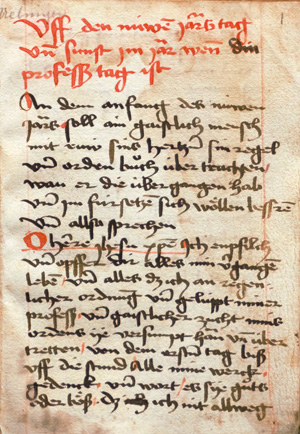 1
Uff den nuwē Jars tag
Vn̄ sunst im Jar wen̄ din
professz tag ist
An dem anfang des nuwen
Jars soll ain gaistlich mensch
mit ruw sins hertzē sin regel
vn̄ orden bůch über
wan er die übergangen hab
vn̄ im fürsetze sich wöllen bessrē
vn̄ allso sprechen
O here Jhesu xpe Ich enpfilch
vn̄ opffer dir alles min
lebē vn̄ alles dz ich an regen
licher ordnūg vn̄ gelüppt miner
profess vn̄ gaistlicher zucht mins
ordens ye versumpt han vn̄ über
tretten von dem erstē tag biß
vff die stund alle mine werck
gedenck vn̄ wort es sye gůts
oder böß dz ich nit allweg